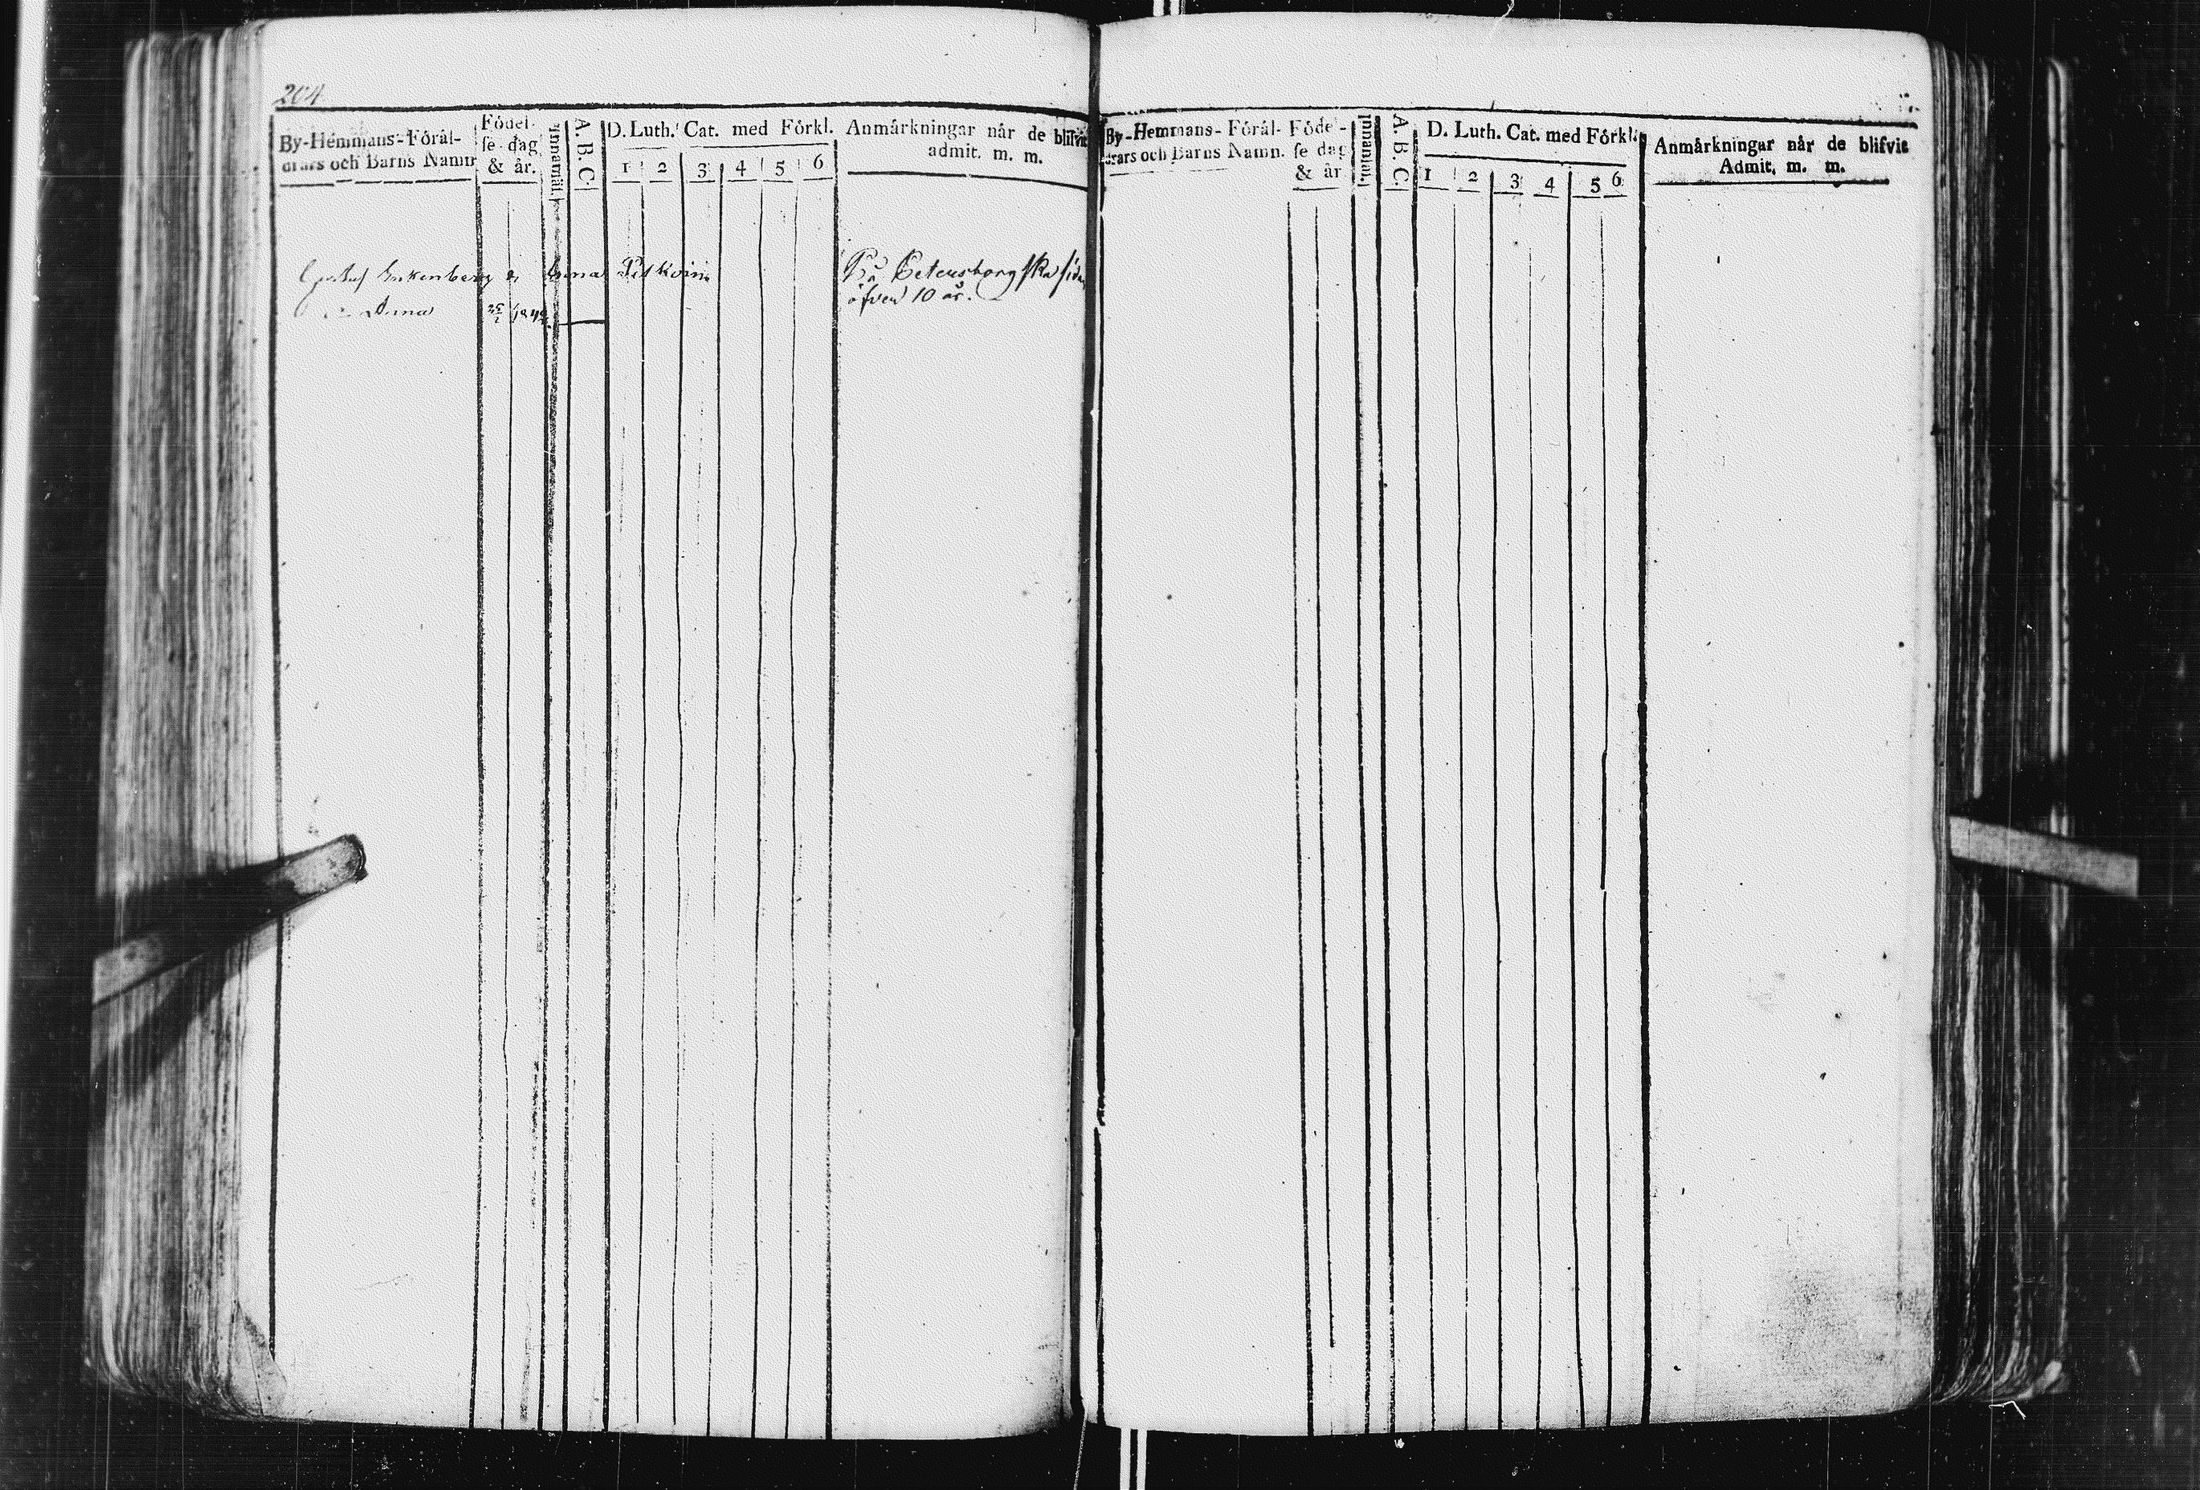 204.
By-Hemmans-Förål-
drars och Barns Namn
Födel-
se dag
& år.
Innanläs.
A. B. C.
D. Luth. Cat. med Förkl.
1 2 3 4 5 6
Anmårkningar når de blifvit
admit. m. m.
Gustaf Enkenberg & Anna Pitkänin
Anna 25/2 1842
På Petersborgska sidan
öfver 10 år.
By-Hemmans-Förål-
drars och Barns Namn.
Födel-
se dag
& år
Innanläs.
A. B. C.
D. Luth. Cat. med Förkl.
1 2 3 4 5 6
Anmårkningar når de blifvit
Admit. m. m.